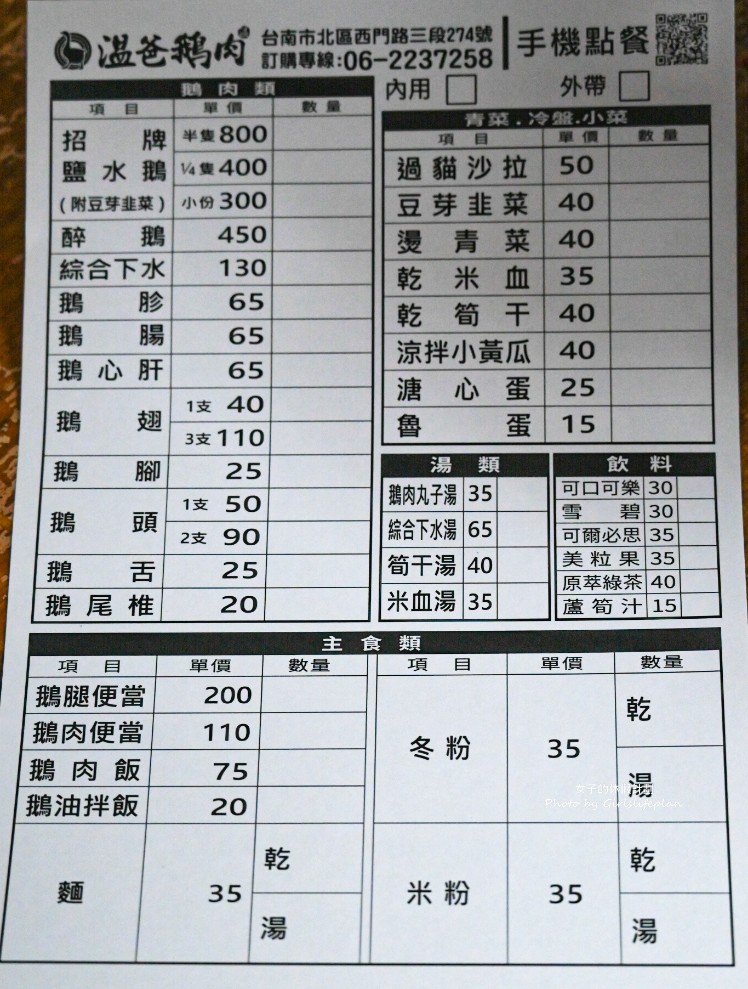 溫爸鵝肉
台南市北區西門路三段274號
訂購專線:06-2237258
手機點餐
內用 外帶
鵝肉類
項目 單價 數量
招牌鹽水鵝(附豆芽韭菜) 半隻 800
¼隻 400
小份 300
醉鵝 450
綜合下水 130
鵝胗 65
鵝腸 65
鵝心肝 65
鵝翅 1支 40
3支 110
鵝腳 25
鵝頭 1支 50
2支 90
鵝舌 25
鵝尾椎 20
青菜.冷盤.小菜
項目 單價 數量
過貓沙拉 50
豆芽韭菜 40
燙青菜 40
乾米血 35
乾筍干 40
涼拌小黃瓜 40
溏心蛋 25
魯蛋 15
湯類
鵝肉丸子湯 35
綜合下水湯 65
筍干湯 40
米血湯 35
飲料
可口可樂 30
雪碧 30
可爾必思 35
美粒果 35
原萃綠茶 40
蘆筍汁 15
主食類
項目 單價 數量 項目 單價 數量
鵝腿便當 200
鵝肉便當 110
鵝肉飯 75
鵝油拌飯 20
麵 35 乾
湯
冬粉 35 乾
湯
米粉 35 乾
湯
Photo by Girlslifeplan